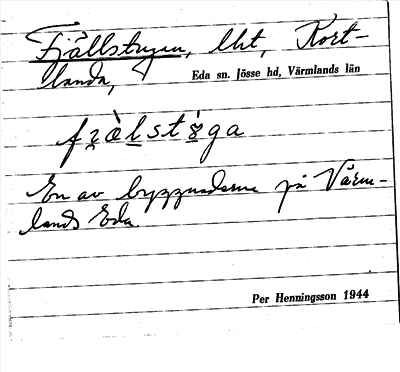 Fjällstugan, lht, Kort-
landa, Eda sn. Jösse hd, Värmlands län
fɹ̀älstö́ga
En av byggnaderna på Värm-
lands Eda.
Per Henningsson 1944